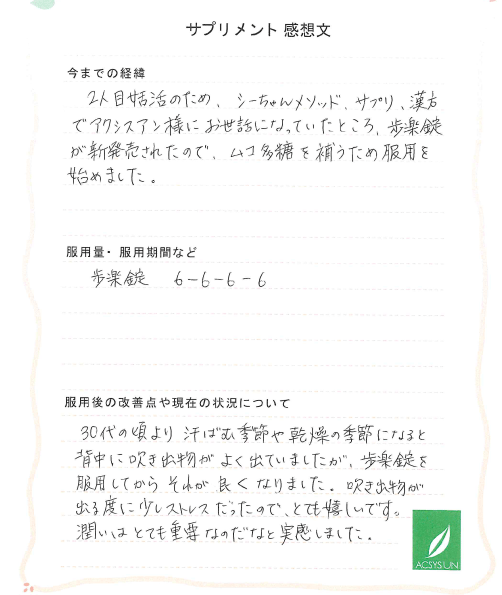 サプリメント 感想文
今までの経緯
2人目妊活のため、シーちゃんメソッド、サプリ、漢方
でアクシスアン様にお世話になっていたところ、歩楽錠
が新発売されたので、ムコ多糖を補うため服用を
始めました。
服用量・服用期間など
歩楽錠　6-6-6-6
服用後の改善点や現在の状況について
30代の頃より汗ばむ季節や乾燥の季節になると
背中に吹き出物がよく出ていましたが、歩楽錠を
服用してからそれが良くなりました。吹き出物が
出る度に少しストレスだったので、とても嬉しいです。
潤いはとても重要なのだなと実感しました。
ACSYSUN